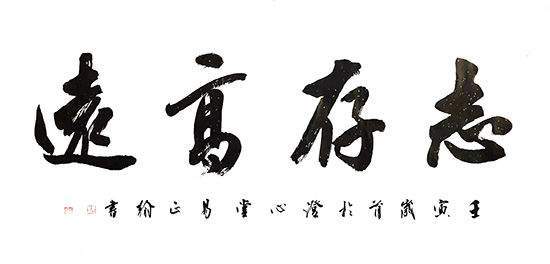 志存高遠
壬寅歲首於澄心堂易正翰書